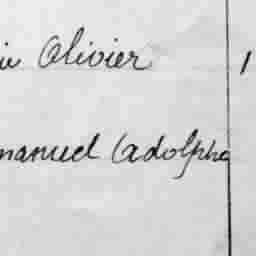 ie Olivier 1
manuel Adolphe